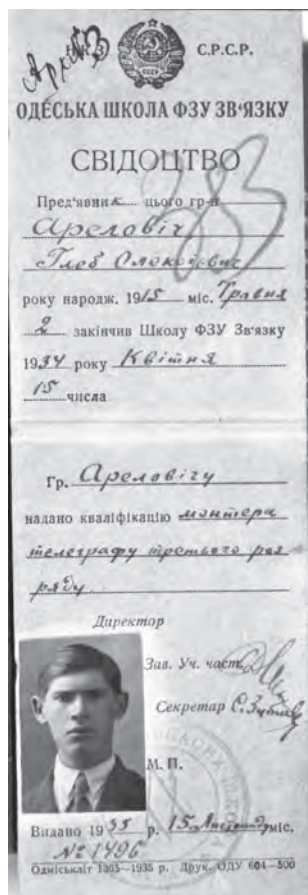 Архів
Н.К.З. С.Р.С.Р.
ОДЕСЬКА ШКОЛА ФЗУ ЗВ'ЯЗКУ
СВІДОЦТВО
283
Пред'явник цього гр-н
Ареловіч
Глеб Олексієвич
року народж. 1915 міс. Травня
2 закінчив Школу ФЗУ Зв'язку
1934 року Квітня
15 числа
Гр. Ареловічу
надано кваліфікацію монтера
телеграфу третього роз-
ряду
Директор
Зав. Уч. част.
Секретар
М. П.
Видано 1935 р. 15 міс.
№ 1496
Одміськліт 1365—1935 р. Друк. ОДУ 604—500